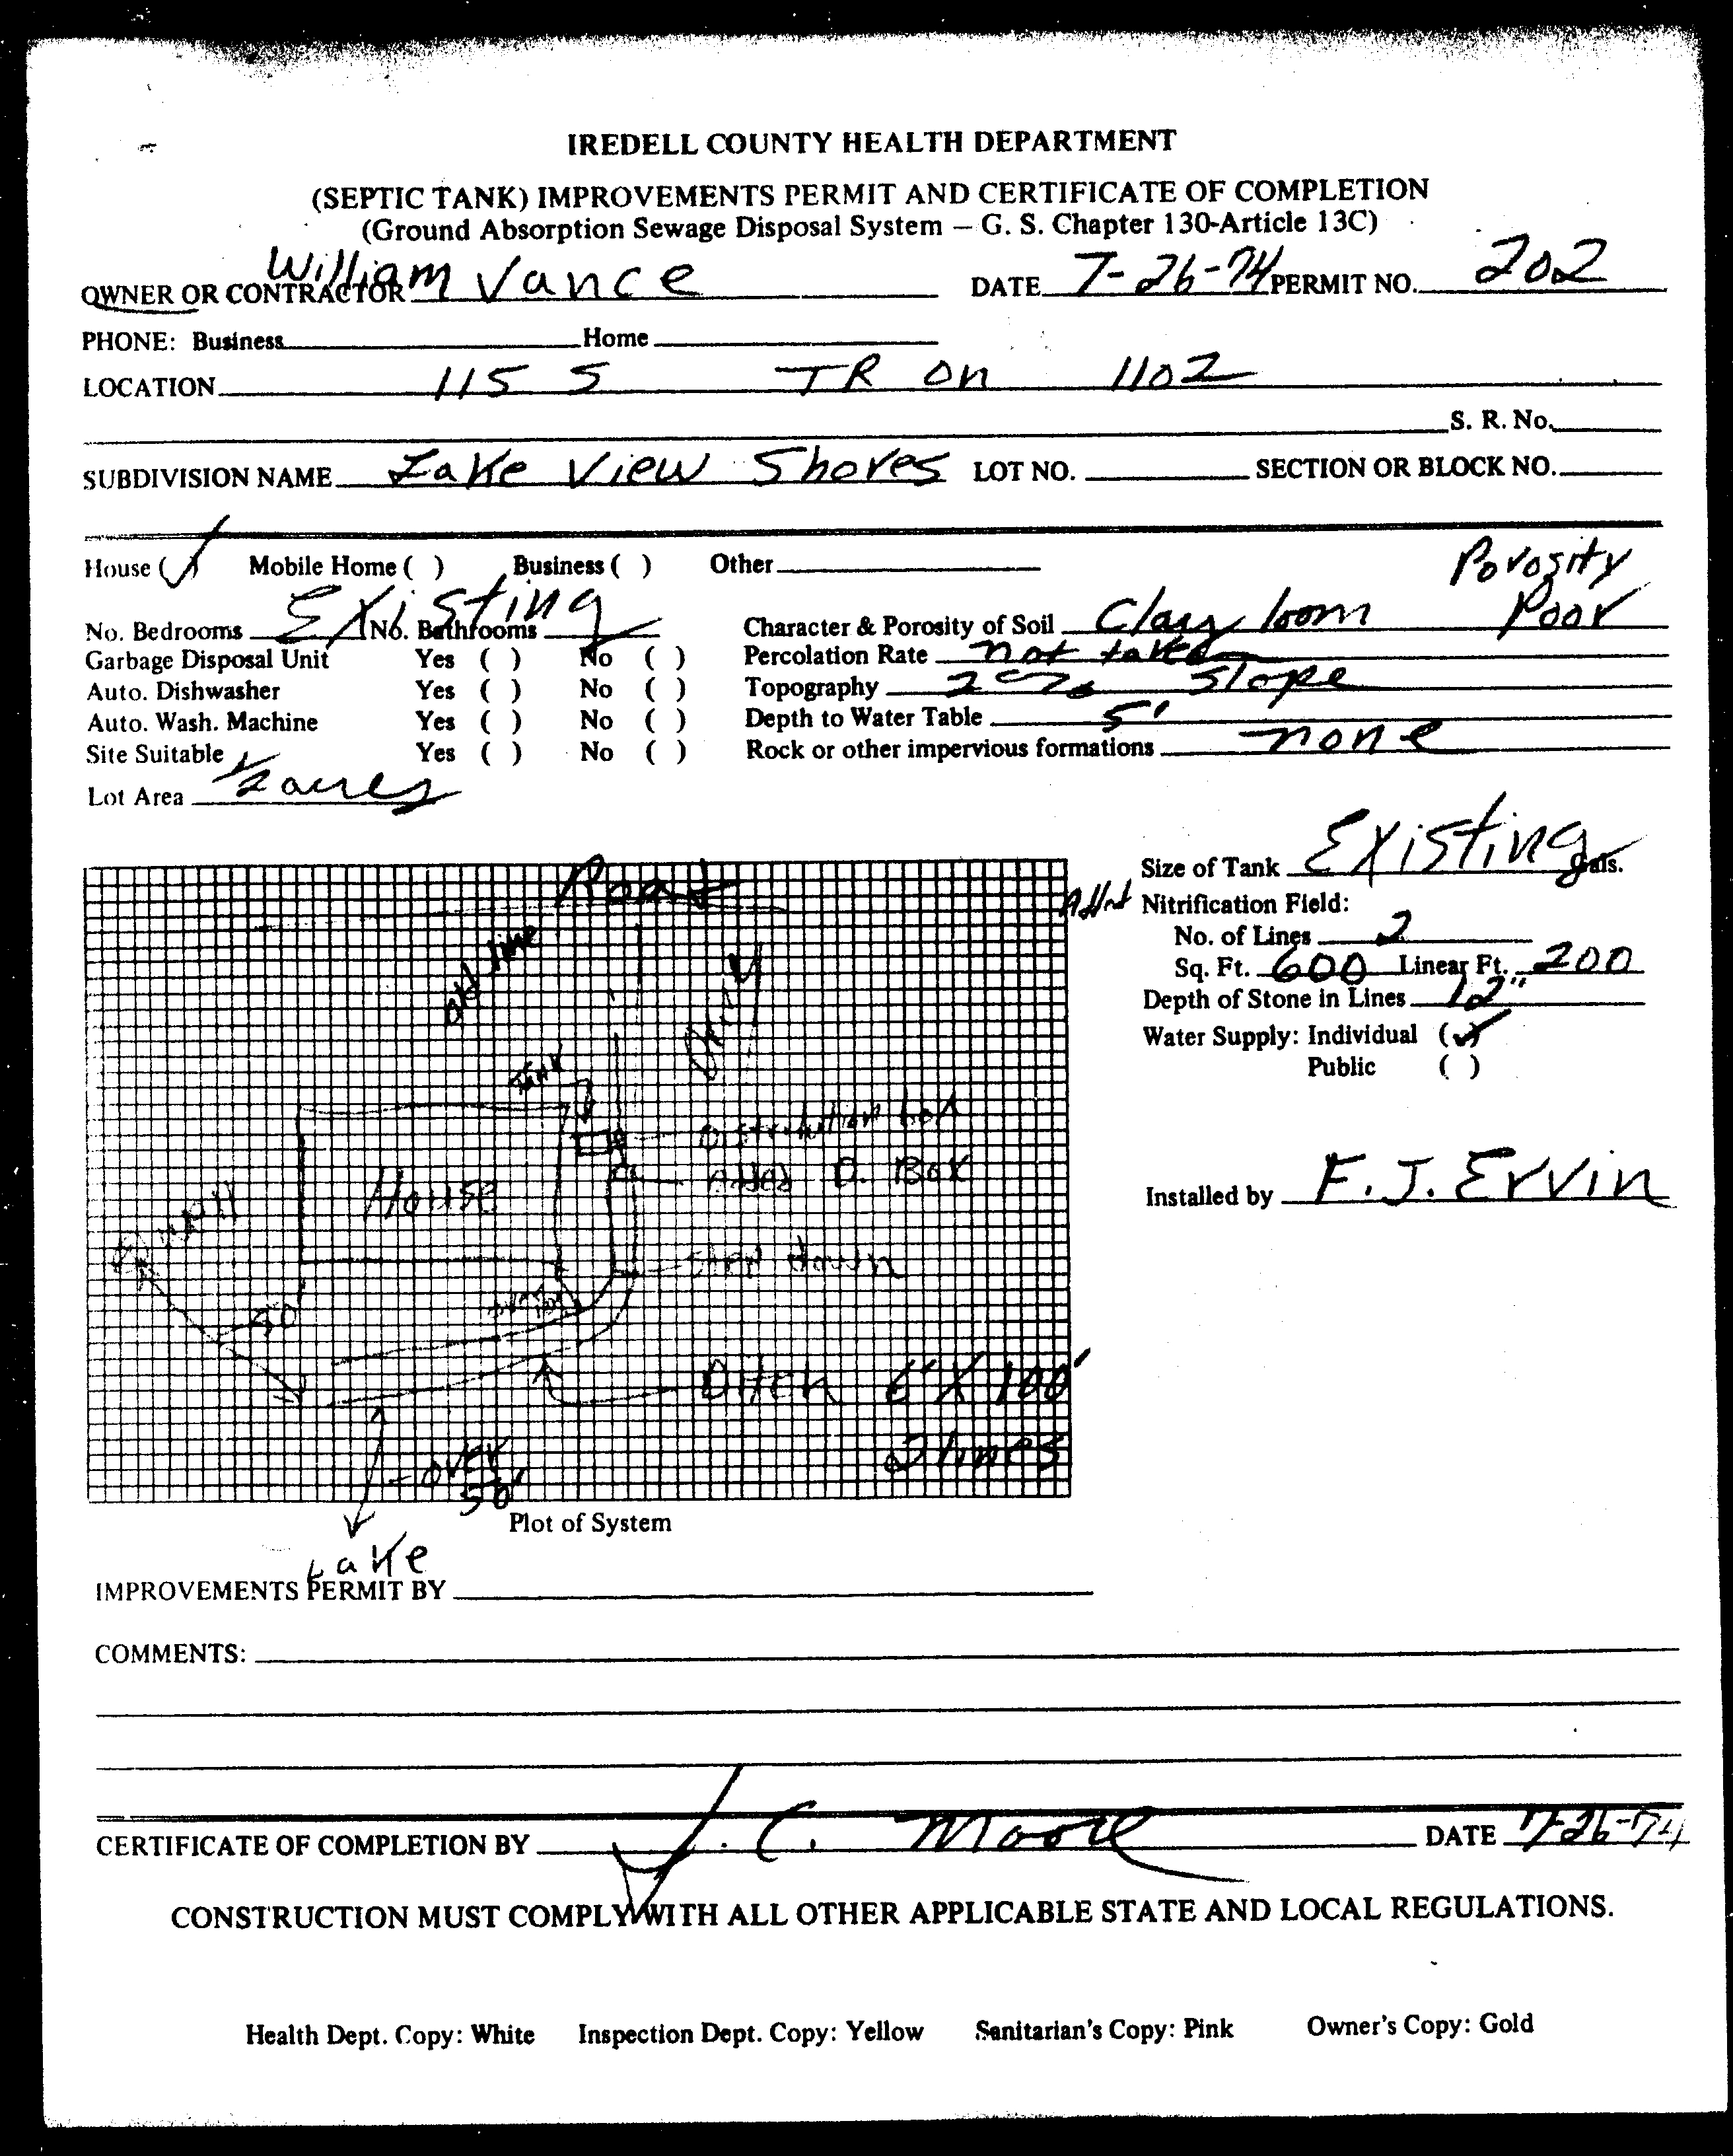 IREDELL COUNTY HEALTH DEPARTMENT
(SEPTIC TANK) IMPROVEMENTS PERMIT AND CERTIFICATE OF COMPLETION
(Ground Absorption Sewage Disposal System – G. S. Chapter 130-Article 13C)
OWNER OR CONTRACTOR William Vance DATE 7-26-74 PERMIT NO. 202
PHONE: Business Home
LOCATION 115 S TR on 1102
S. R. No.
SUBDIVISION NAME Lake View Shores LOT NO. SECTION OR BLOCK NO.
House (✓) Mobile Home ( ) Business ( ) Other
Porosity
No. Bedrooms Existing No. Bathrooms Character & Porosity of Soil Clay loom Poor
Garbage Disposal Unit Yes ( ) No ( ) Percolation Rate not taken
Auto. Dishwasher Yes ( ) No ( ) Topography 2% Slope
Auto. Wash. Machine Yes ( ) No ( ) Depth to Water Table 5'
Site Suitable Yes ( ) No ( ) Rock or other impervious formations none
Lot Area 1/2 acres
Size of Tank Existing Gals.
Nitrification Field:
No. of Lines 2
Sq. Ft. 600 Linear Ft. 200
Depth of Stone in Lines 12"
Water Supply: Individual (✓)
Public ( )
Installed by F. J. Ervin
Road
Old line
Tank
Distribution box
Added D. Box
House
Step down
50'
Ditch 100'
2 lines
over
50'
Plot of System
Lake
IMPROVEMENTS PERMIT BY
COMMENTS:
CERTIFICATE OF COMPLETION BY J. C. Moore DATE 7-26-74
CONSTRUCTION MUST COMPLY WITH ALL OTHER APPLICABLE STATE AND LOCAL REGULATIONS.
Health Dept. Copy: White Inspection Dept. Copy: Yellow Sanitarian's Copy: Pink Owner's Copy: Gold